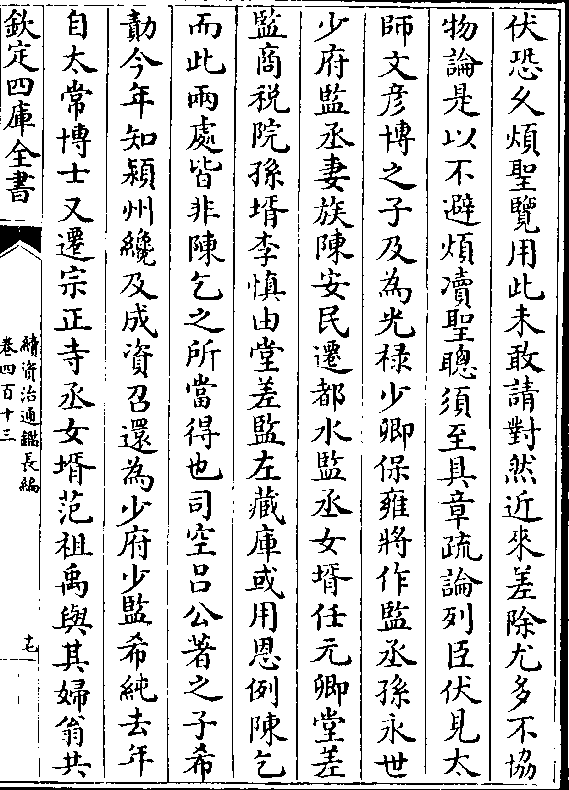 伏恐久煩聖覽用此未敢請對然近來差除尤多不協
物論是以不避煩瀆聖聰須至具章疏論列臣伏見太
師文彥博之子及為光祿少卿保雍將作監丞孫永世
少府監丞妻族陳安民遷都水監丞女壻任元卿堂差
監商稅院孫壻李慎由堂差監左藏庫或用恩例陳乞
而此兩處皆非陳乞之所當得也司空呂公著之子希
勣今年知潁州纔及成資召還為少府少監希純去年
自太常博士又遷宗正寺丞女壻范祖禹與其婦翁共
欽定四庫全書
續資治通鑑長編
卷四百十三
十七